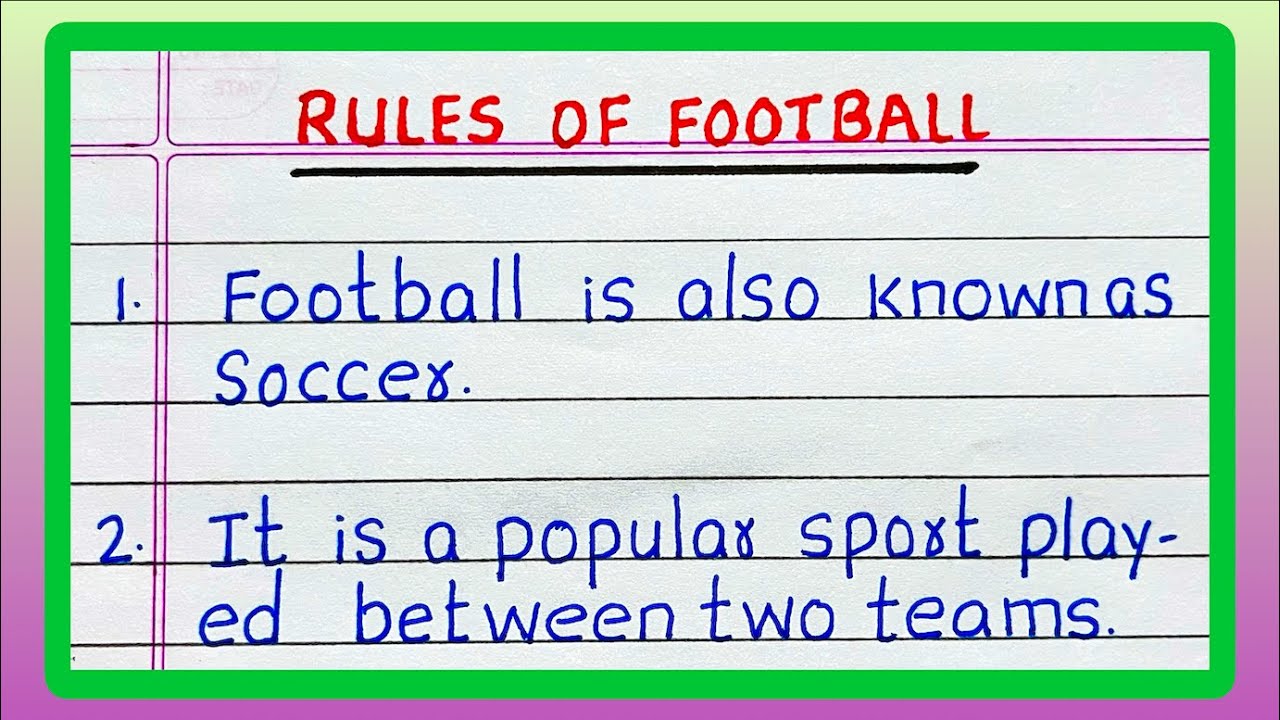 RULES OF FOOTBALL
1. Football is also known as
Soccer.
2. It is a popular sport play-
ed between two teams.